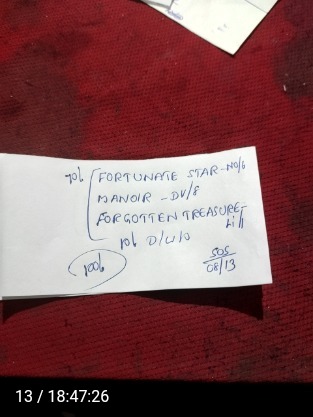 70/- FORTUNATE STAR-NO/6
MANOIR - DV/8
FORGOTTEN TREASURE-
Li/1
10/- D/U/O
100/-
505
08/13
13 / 18:47:26